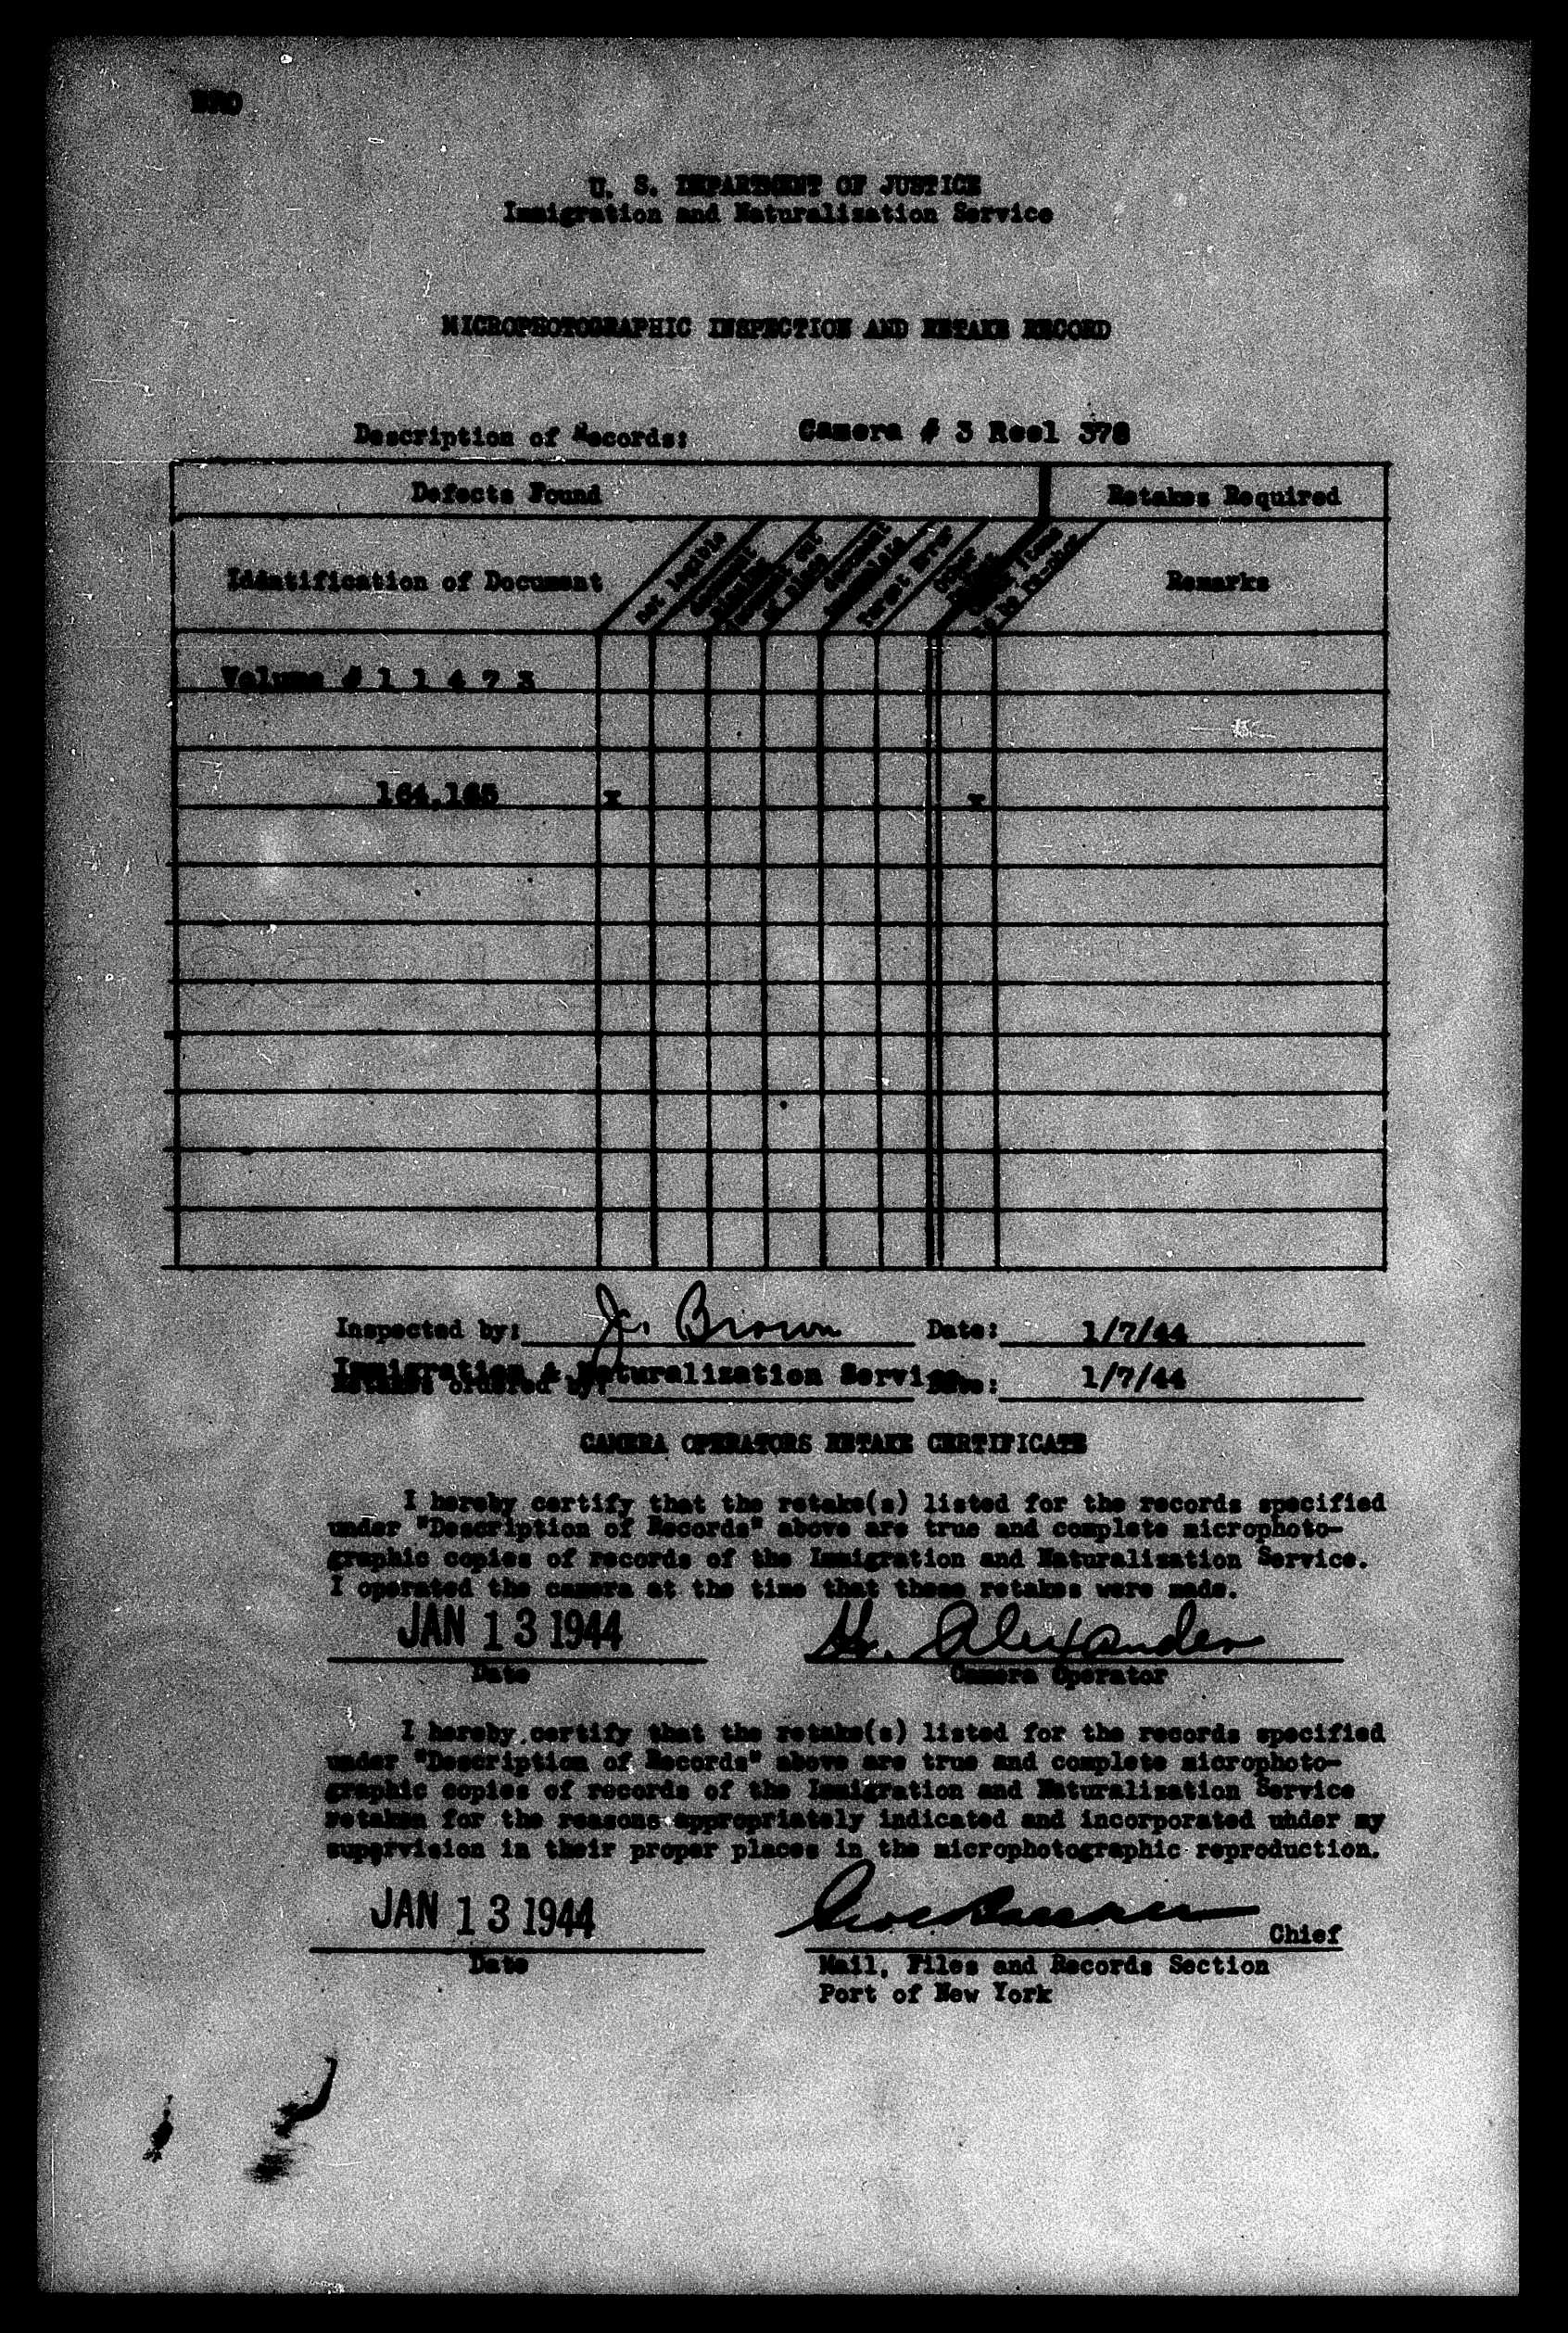 U. S. DEPARTMENT OF JUSTICE
Immigration and Naturalization Service
MICROPHOTOGRAPHIC INSPECTION AND RETAKE RECORD
Description of Records: Camera # 3 Reel 378
Defects Found Retakes Required
Iddntification of Document Not legible Remarks
Volume # 1 1 4 7 3
164,165 x x
Inspected by: J. Brown Date: 1/7/44
Immigration & Naturalization Service 1/7/44
Retakes ordered by: Date:
CAMERA OPERATORS RETAKE CERTIFICATE
I hereby certify that the retake(s) listed for the records specified
under "Description of Records" above are true and complete microphoto-
graphic copies of records of the Immigration and Naturalization Service.
I operated the camera at the time that these retakes were made.
JAN 13 1944 H. Alexander
Date Camera Operator
I hereby certify that the retake(s) listed for the records specified
under "Description of Records" above are true and complete microphoto-
graphic copies of records of the Immigration and Naturalization Service
retaken for the reasons appropriately indicated and incorporated under my
supervision in their proper places in the microphotographic reproduction.
JAN 13 1944 Chief
Date Mail, Files and Records Section
Port of New York